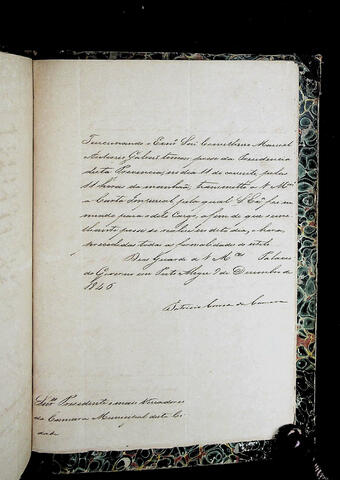 Tencionando o Exmo Snr Conselheiro Manuel
Antonio Galvão tomar posse da Presidencia
desta Provincia no dia 11 do corrente pelas
11 horas da manhãa, transmitto a V. Mces
a Carta Imperial pela qual S. Exa foi no
meado para o dito Cargo, a fim de que seme
lhante posse se realise no dito dia, e hora,
preenchidas todas as formalidades do estilo
Deos Guarde a V. Mces Palacio
do Governo em Porto Alegre 9 de Dezembro de
1846
Patricio Correa da Camara
Snrs Presidente e mais Vereadores
da Camara Municipal desta Ci
dade